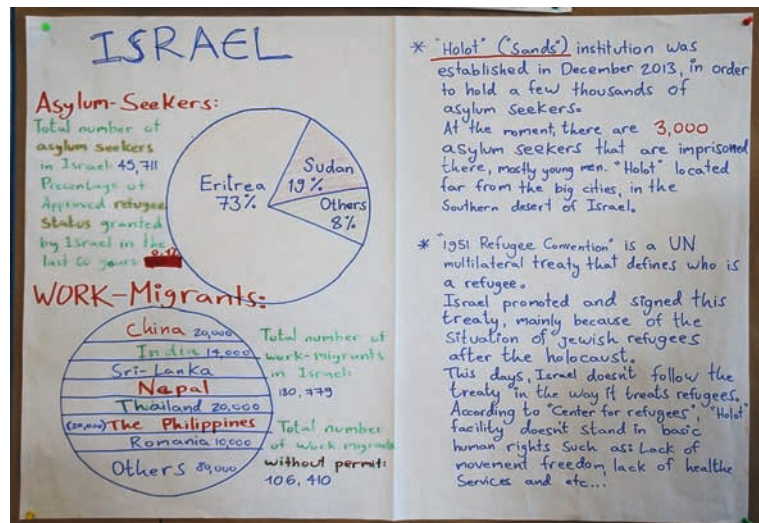 ISRAEL
Asylum-Seekers:
Total number of
asylum seekers
in Israel: 45,711
Percentage of
Approved refugee
status granted
by Israel in the
last 60 years
Eritrea
73%
Sudan
19%
Others
8%
WORK-Migrants:
China 20,000
India
Sri-Lanka
Nepal
Thailand 20,000
(20,000) The Philippines
Romania 10,000
Others 89,000
Total number of
work-migrants
in Israel:
Total number
of work migrants
without permit:
106,410
* "Holot" ("Sands") institution was
established in December 2013, in order
to hold a few thousands of
asylum seekers.
At the moment, there are 3,000
asylum seekers that are imprisoned
there, mostly young men. "Holot" located
far from the big cities, in the
Southern desert of Israel.
* "1951 Refugee Convention" is a UN
multilateral treaty that defines who is
a refugee.
Israel promoted and signed this
treaty, mainly because of the
situation of jewish refugees
after the holocaust.
This days, Israel doesn't follow the
treaty in the way it treats refugees.
According to "Center for refugees", "Holot"
facility doesn't stand in basic
human rights such as: Lack of
movement freedom, lack of healthe
Services and etc...